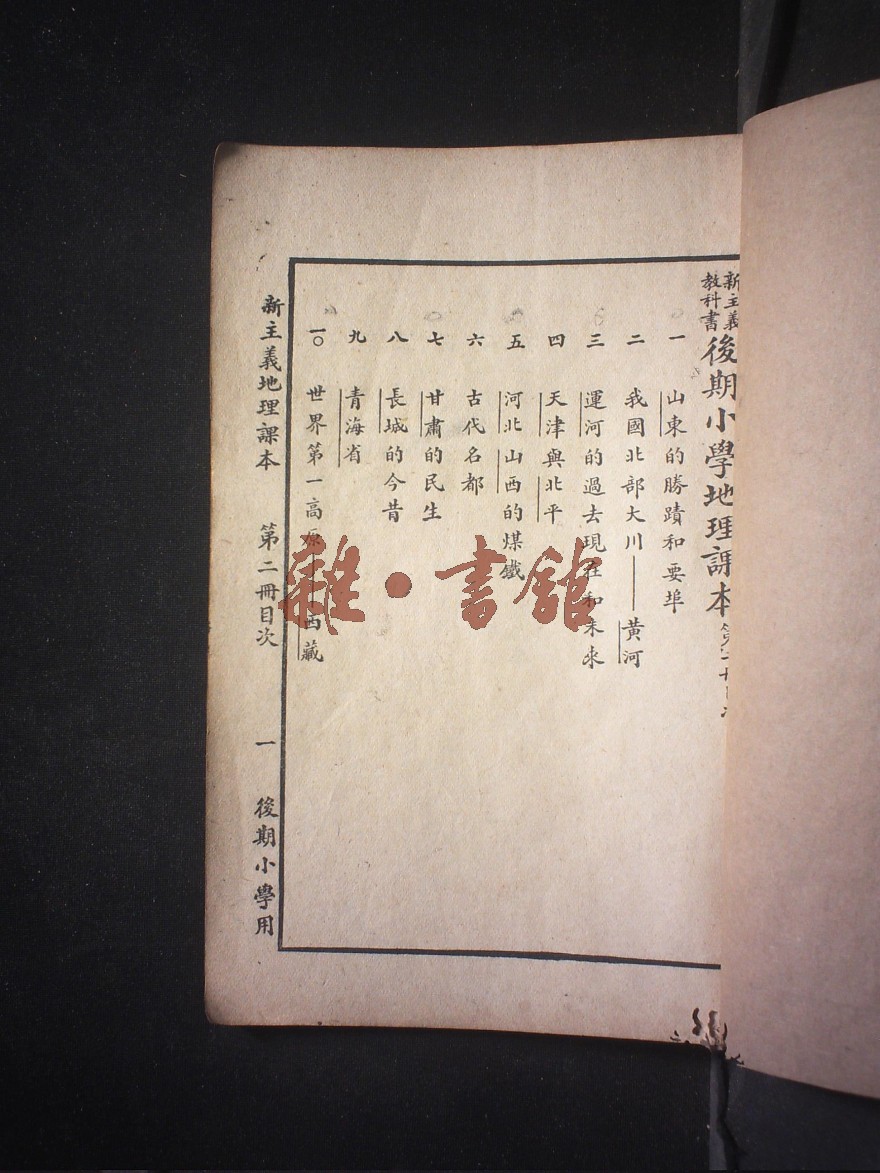 新主義
教科書
後期小學地理課本第二冊目次
一 山東的勝蹟和要埠
二 我國北部大川——黃河
三 運河的過去現在和未來
四 天津與北平
五 河北山西的煤鐵
六 古代名都
七 甘肅的民生
八 長城的今昔
九 青海省
一〇 世界第一高原——西藏
新主義地理課本 第二冊目次 一 後期小學用
雜·書館